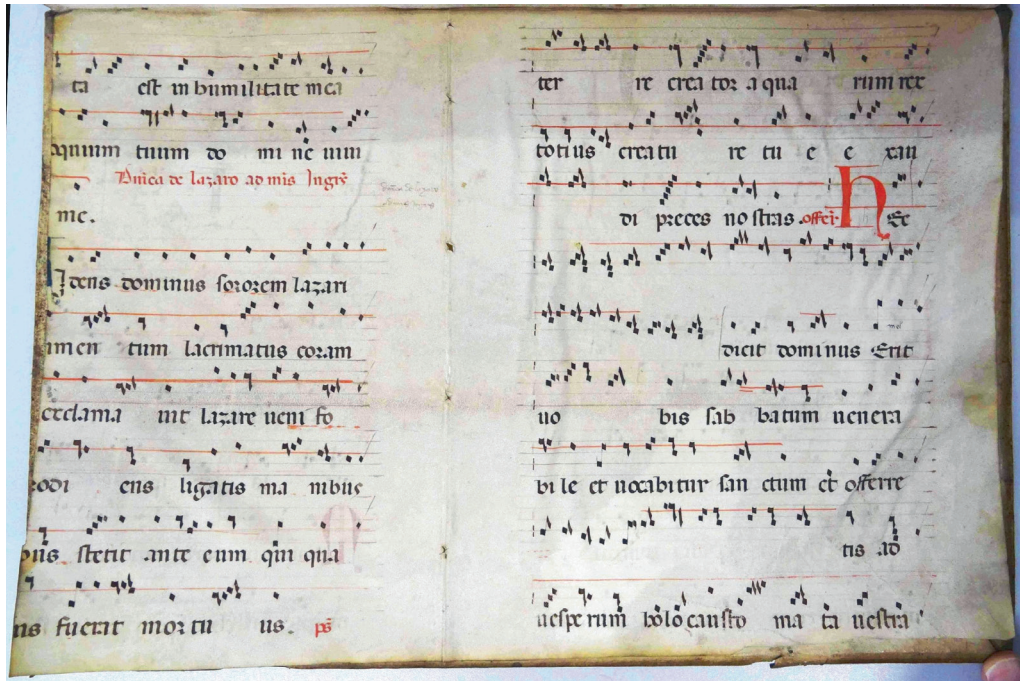 ta est in humilitate mea
tuum do mi ne uiui
Dnica de lazaro ad mis Ingr
me.
dens dominus sororem lazari
men tum lacrimatus coram
exclama uit lazare ueni fo
rodi ens ligatis ma nibus
bus stetit ante eum qui qua
fuerat mortu us. ps
ter re creator aqua rum rex
totius creatu re tu e e xau
di preces nostras. offer
Hec
dicit dominus Erit
uo bis sab batum uenera
bi le et uocabitur san ctum et offerre
tis ad
uespe rum holocausto ma ta uestra